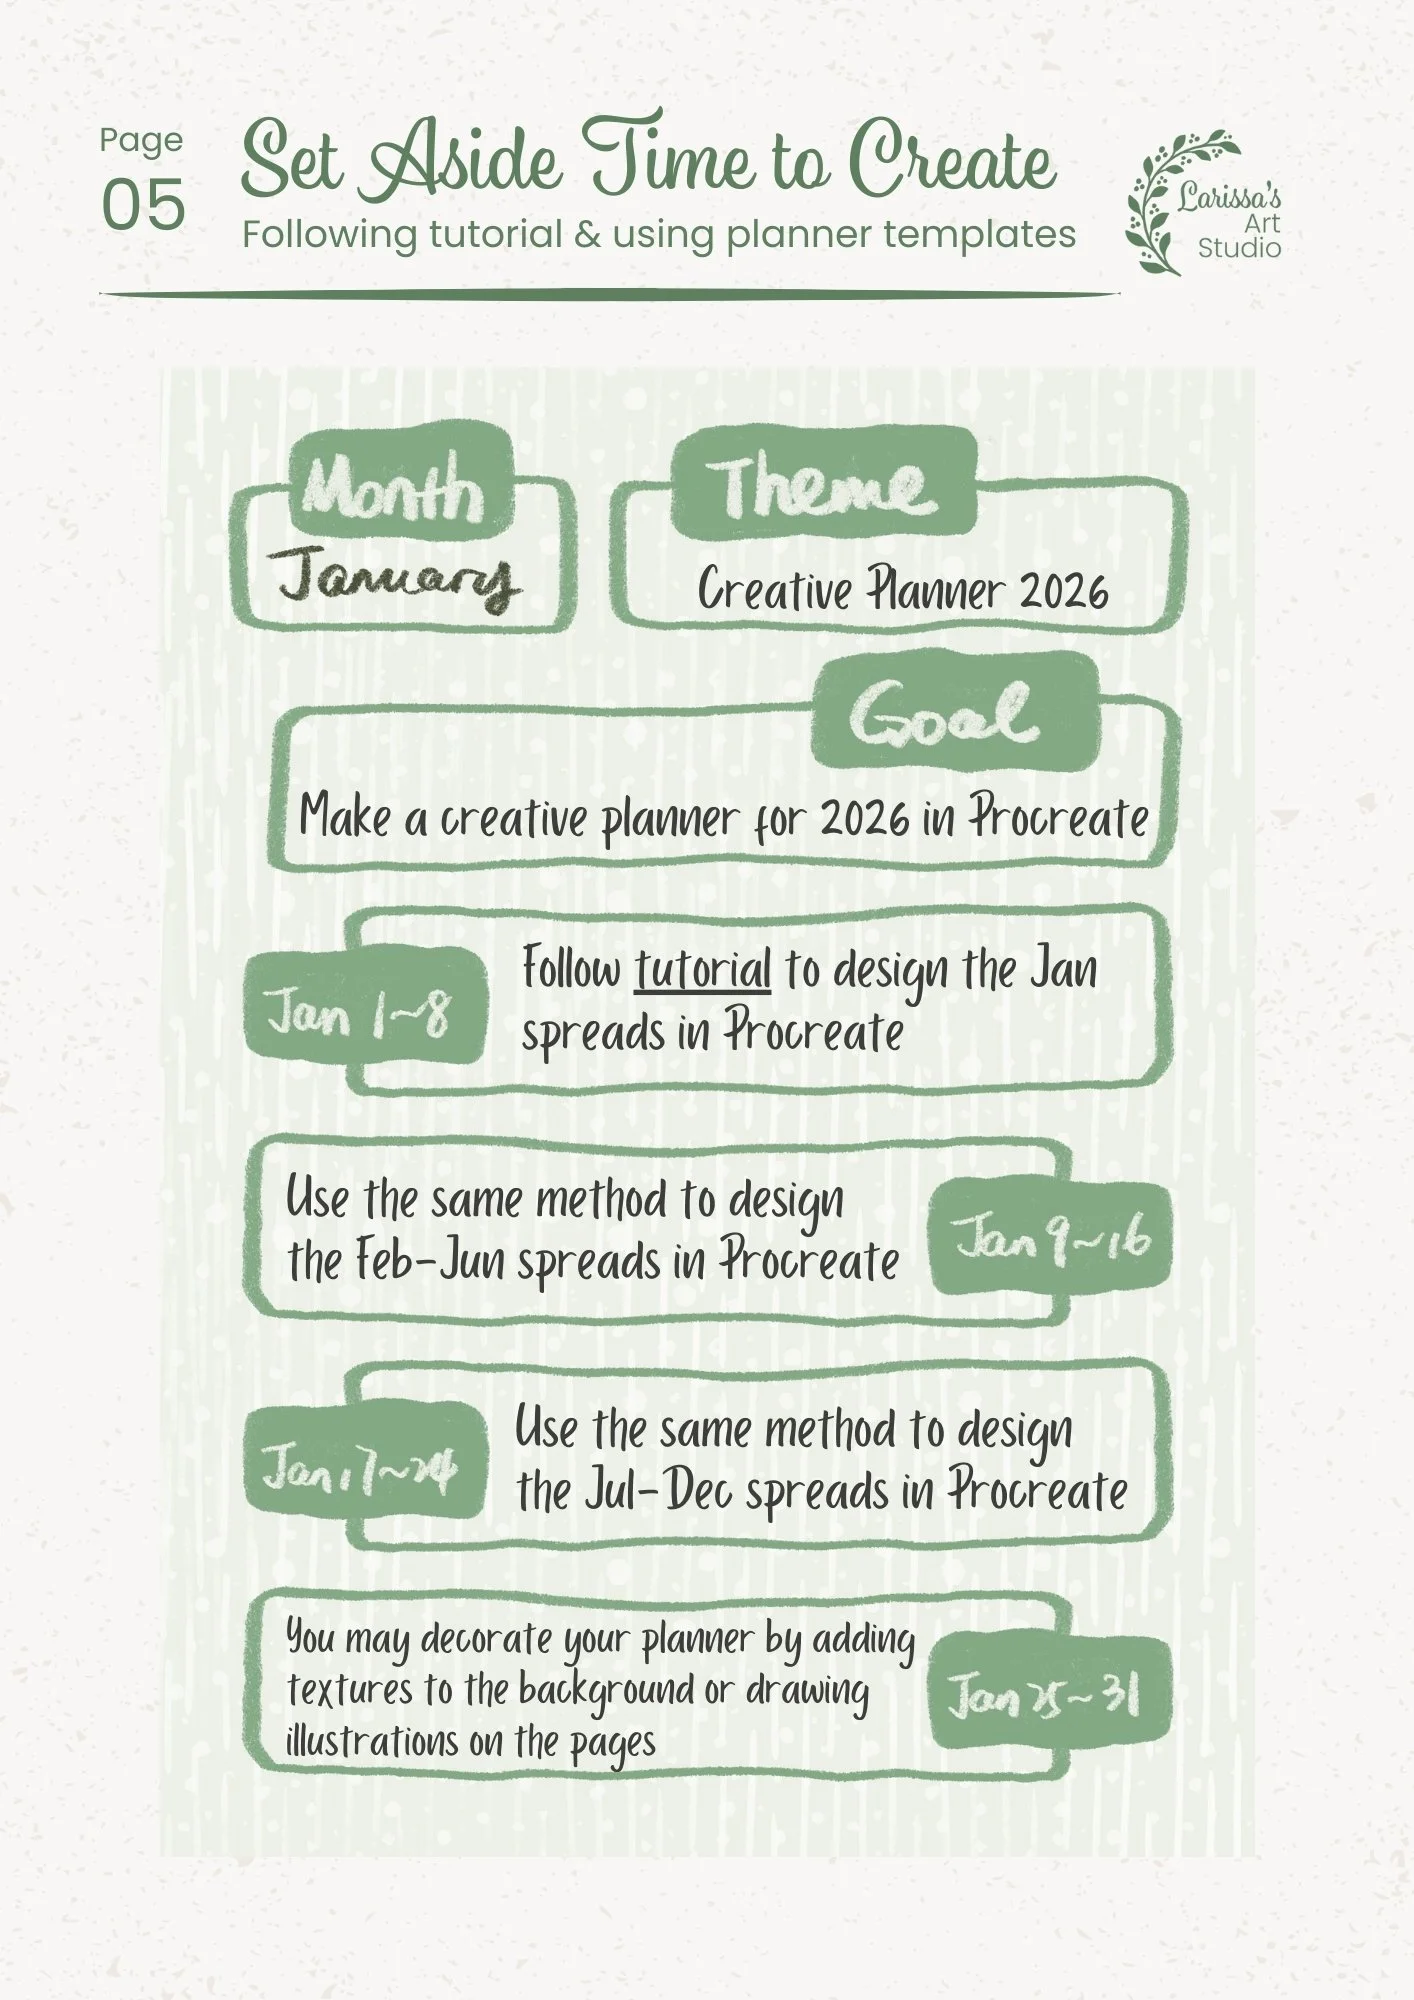 Page
05
Set Aside Time to Create
Following tutorial & using planner templates
Larissa's
Art
Studio
Month
January
Theme
Creative Planner 2026
Goal
Make a creative planner for 2026 in Procreate
Jan 1~8
Follow tutorial to design the Jan
spreads in Procreate
Use the same method to design
the Feb-Jun spreads in Procreate
Jan 9~16
Jan 17~24
Use the same method to design
the Jul-Dec spreads in Procreate
You may decorate your planner by adding
textures to the background or drawing
illustrations on the pages
Jan 25~31